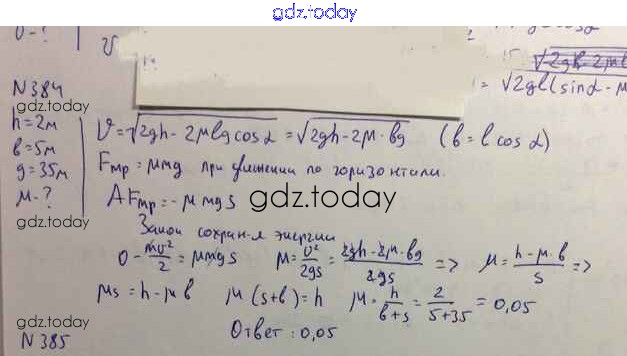 gdz.today
υ - ?
υ
√2gl(sinα - μ
N 384
gdz.today
h = 2м
b = 5м
g = 35м
μ - ?
υ = √2gh - 2μlg cosα = √2gh - 2μ · bg (b = l cos α)
Fтр = μmg при движении по горизонтали.
AFтр = - μ mg s
gdz.today
Закон сохран-я энергии
0 - mυ²/2 = μmg s μ = υ²/2gs = 2gh - 2μ · bg/2gs => μ = h - μ · b/s =>
μs = h - μ b μ (s + b) = h μ = h/b + s = 2/5 + 35 = 0,05
gdz.today
Ответ : 0,05
N 385
gdz.today